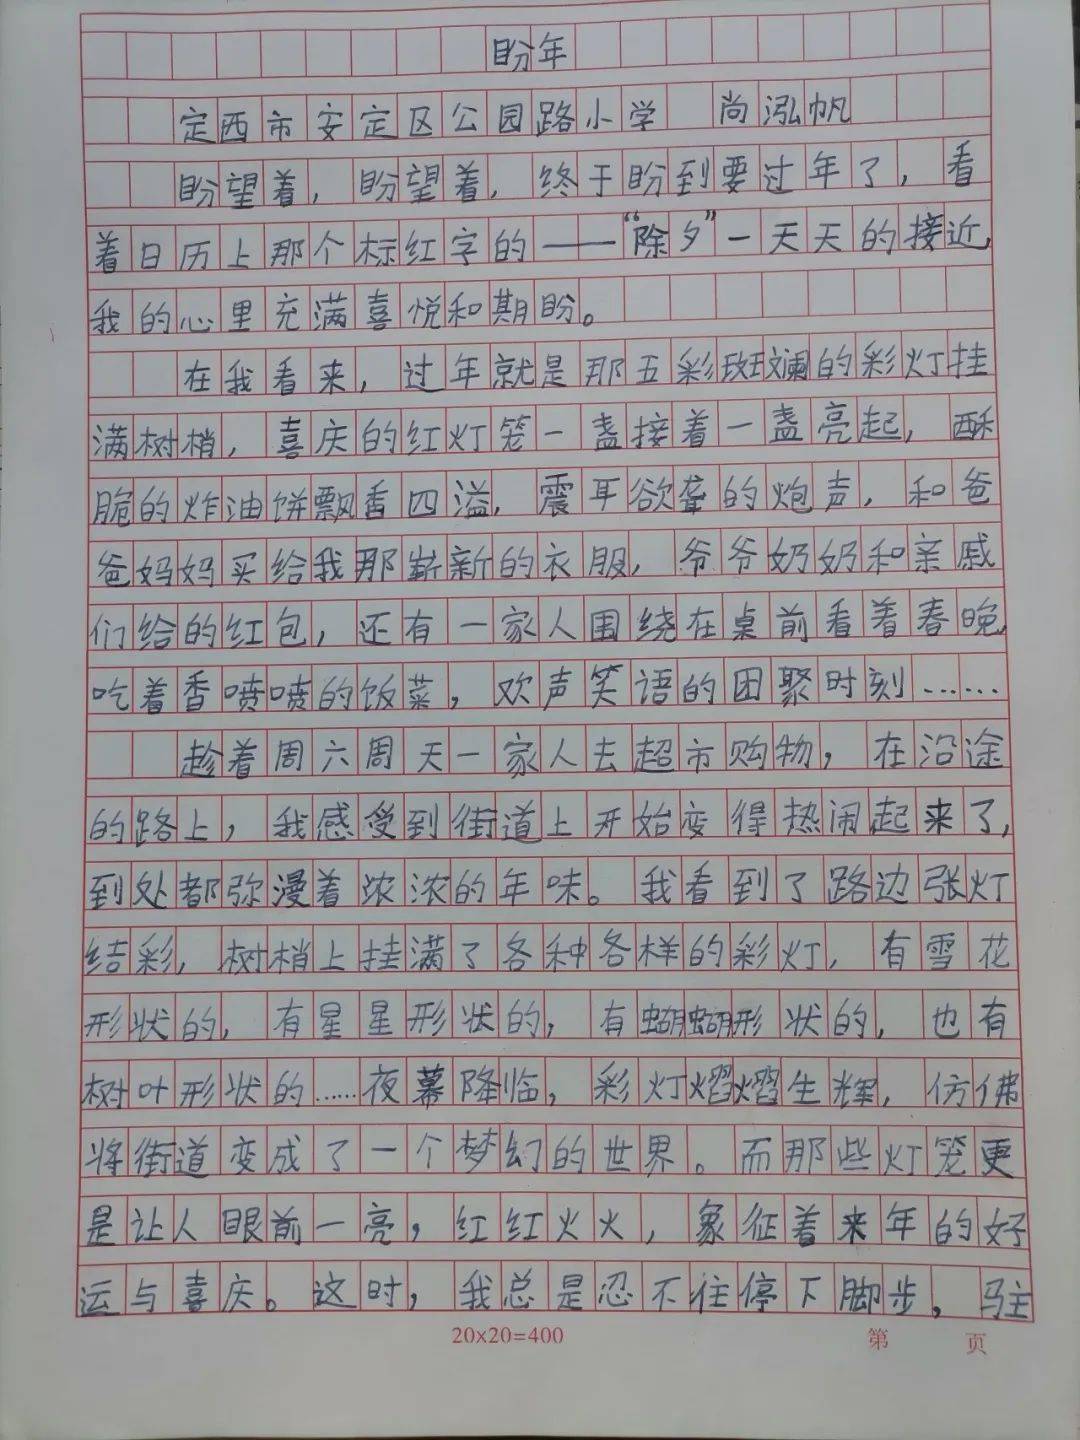 盼年
定西市安定区公园路小学 尚泓帆
盼望着，盼望着，终于盼到要过年了，看
着日历上那个标红字的——“除夕”一天天的接近，
我的心里充满喜悦和期盼。
在我看来，过年就是那五彩斑斓的彩灯挂
满树梢，喜庆的红灯笼一盏接着一盏亮起，酥
脆的炸油饼飘香四溢，震耳欲聋的炮声，和爸
爸妈妈买给我那崭新的衣服，爷爷奶奶和亲戚
们给的红包，还有一家人围绕在桌前看着春晚，
吃着香喷喷的饭菜，欢声笑语的团聚时刻……
趁着周六周天一家人去超市购物，在沿途
的路上，我感受到街道上开始变得热闹起来了，
到处都弥漫着浓浓的年味。我看到了路边张灯
结彩，树梢上挂满了各种各样的彩灯，有雪花
形状的，有星星形状的，有蝴蝴形状的，也有
树叶形状的……夜幕降临，彩灯熠熠生辉，仿佛
将街道变成了一个梦幻的世界。而那些灯笼更
是让人眼前一亮，红红火火，象征着来年的好
运与喜庆。这时，我总是忍不住停下脚步，驻
20×20=400
第 页